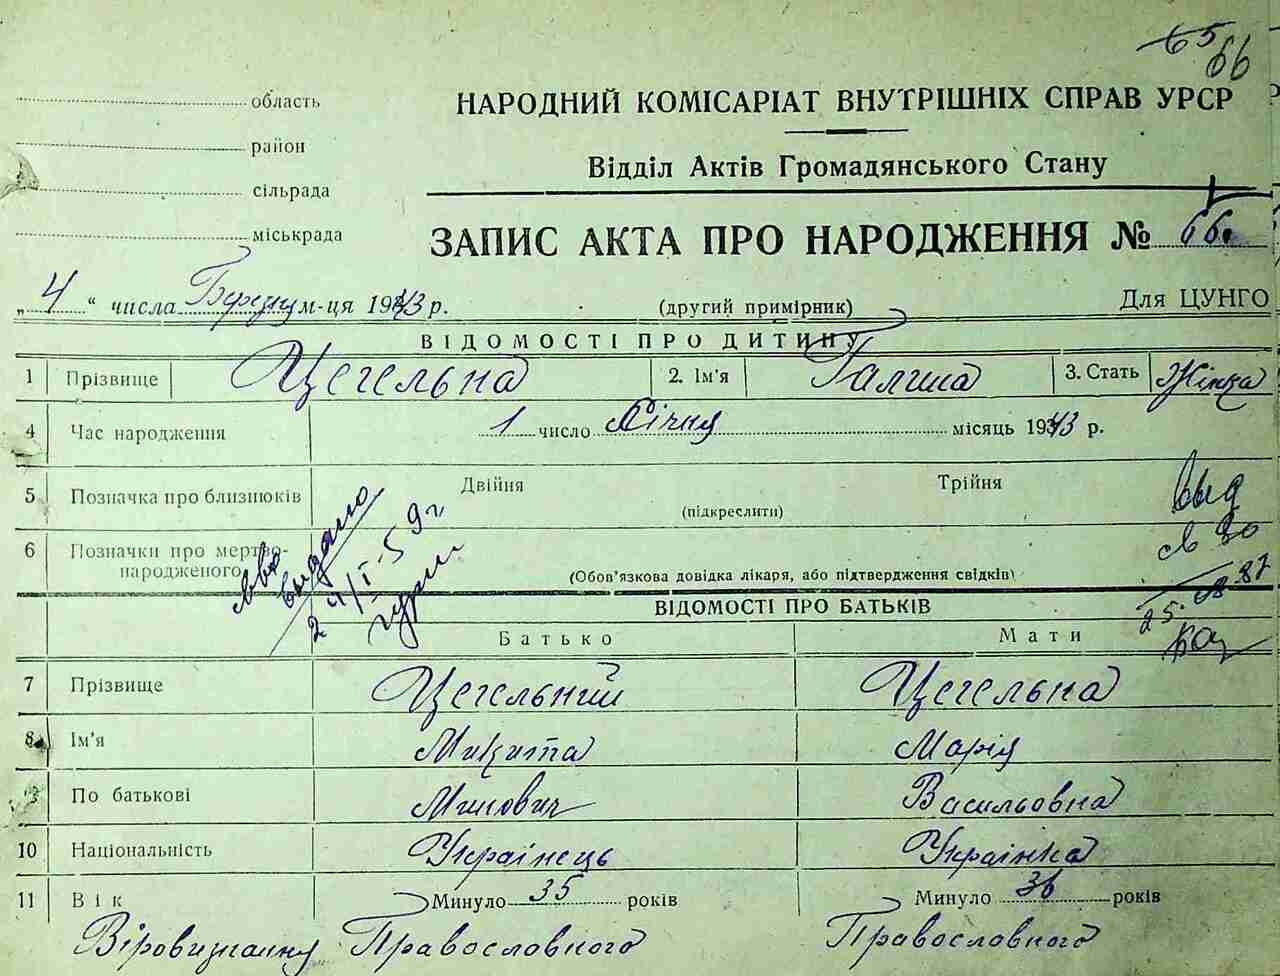 65 66
область
район
сільрада
міськрада
НАРОДНИЙ КОМІСАРІАТ ВНУТРІШНІХ СПРАВ УРСР
Відділ Актів Громадянського Стану
ЗАПИС АКТА ПРО НАРОДЖЕННЯ № 66
„4“ числа Березня м-ця 1943 р. (другий примірник) Для ЦУНГО
ВІДОМОСТІ ПРО ДИТИНУ
1 Прізвище Цегельна 2. Ім'я Галина 3. Стать Жінка
4 Час народження 1 число Січня місяць 1943 р.
5 Позначка про близнюків Двійня Трійня
(підкреслити)
6 Позначки про мертво-
народженого
(Обов'язкова довідка лікаря, або підтвердження свідків)
выдано
59 г
выд
св во
25. 87
ВІДОМОСТІ ПРО БАТЬКІВ
Батько Мати
7 Прізвище Цегельний Цегельна
8 Ім'я Микита Марія
По батькові Минович Васильовна
10 Національність Українець Українка
11 Вік Минуло 35 років Минуло 36 років
Віровизнання Православного Православного